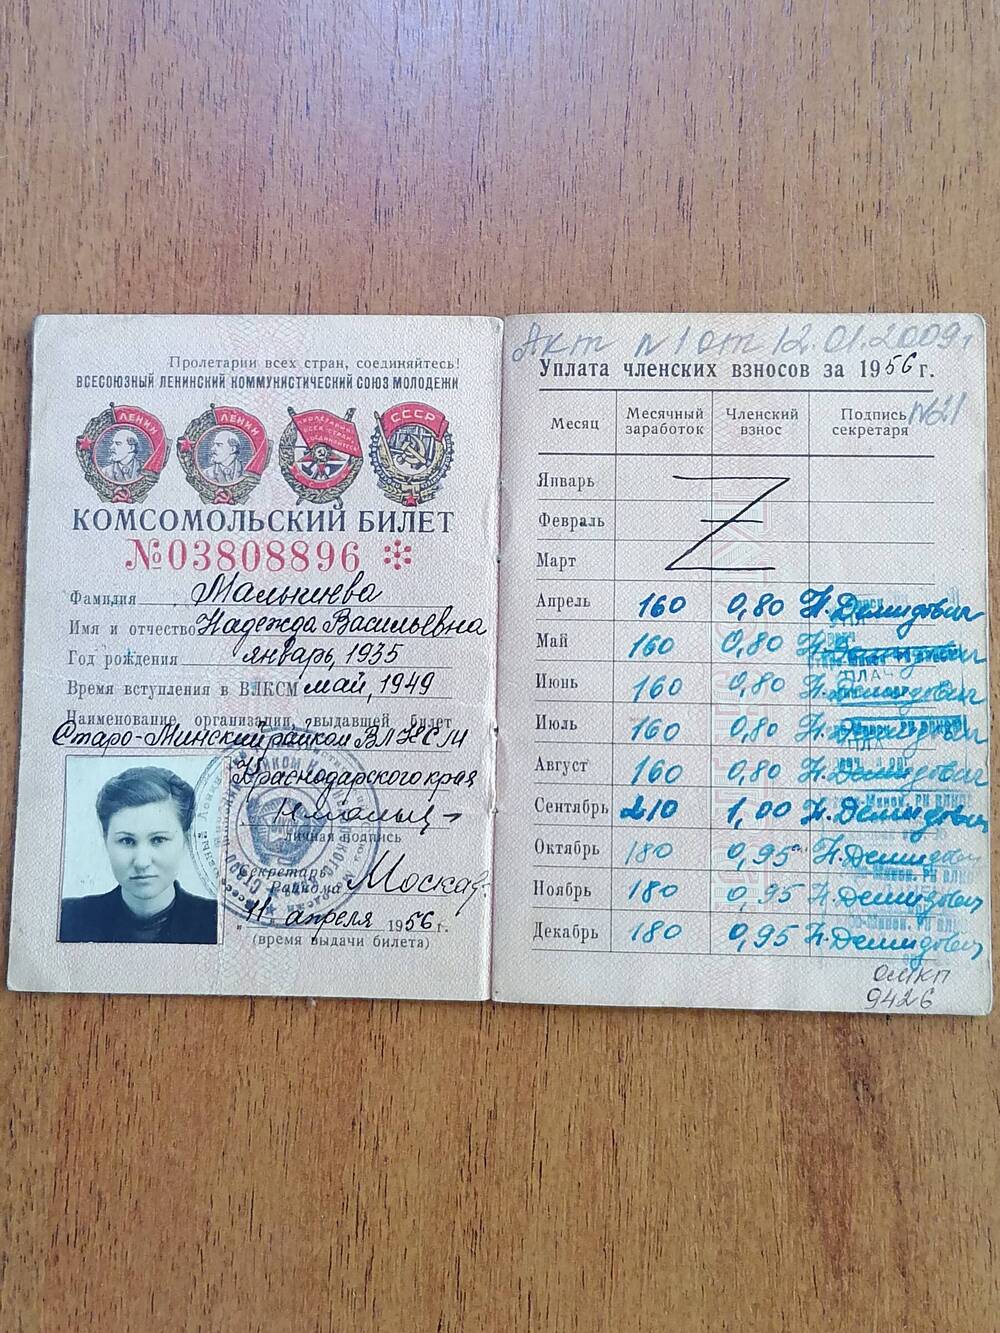 Пролетарии всех стран, соединяйтесь!
ВСЕСОЮЗНЫЙ ЛЕНИНСКИЙ КОММУНИСТИЧЕСКИЙ СОЮЗ МОЛОДЕЖИ
ЛЕНИН ЛЕНИН ПРОЛЕТАРИИ ВСЕХ СТРАН СОЕДИНЯЙТЕСЬ СССР
КОМСОМОЛЬСКИЙ БИЛЕТ
№03808896
Фамилия Малышева
Имя и отчество Надежда Васильевна
Год рождения январь, 1935
Время вступления в ВЛКСМ май, 1949
Наименование организации, выдавшей билет
Старо-Минский райком ВЛКСМ
Краснодарского края
личная подпись
Секретарь Райкома
11 апреля 1956 г.
(время выдачи билета)
Акт №1 от 12.01.2009г
Уплата членских взносов за 1956 г.
№21
Месяц Месячный заработок Членский взнос Подпись секретаря
Январь
Февраль
Март
Апрель 160 0,80 Н.Демидович
Май 160 0,80 Н.Демидович
Июнь 160 0,80 Н.Демидович
Июль 160 0,80 Н.Демидович
Август 160 0,80 Н.Демидович
Сентябрь 210 1,00 Н.Демидович
Октябрь 180 0,95 Н.Демидович
Ноябрь 180 0,95 Н.Демидович
Декабрь 180 0,95 Н.Демидович
9426